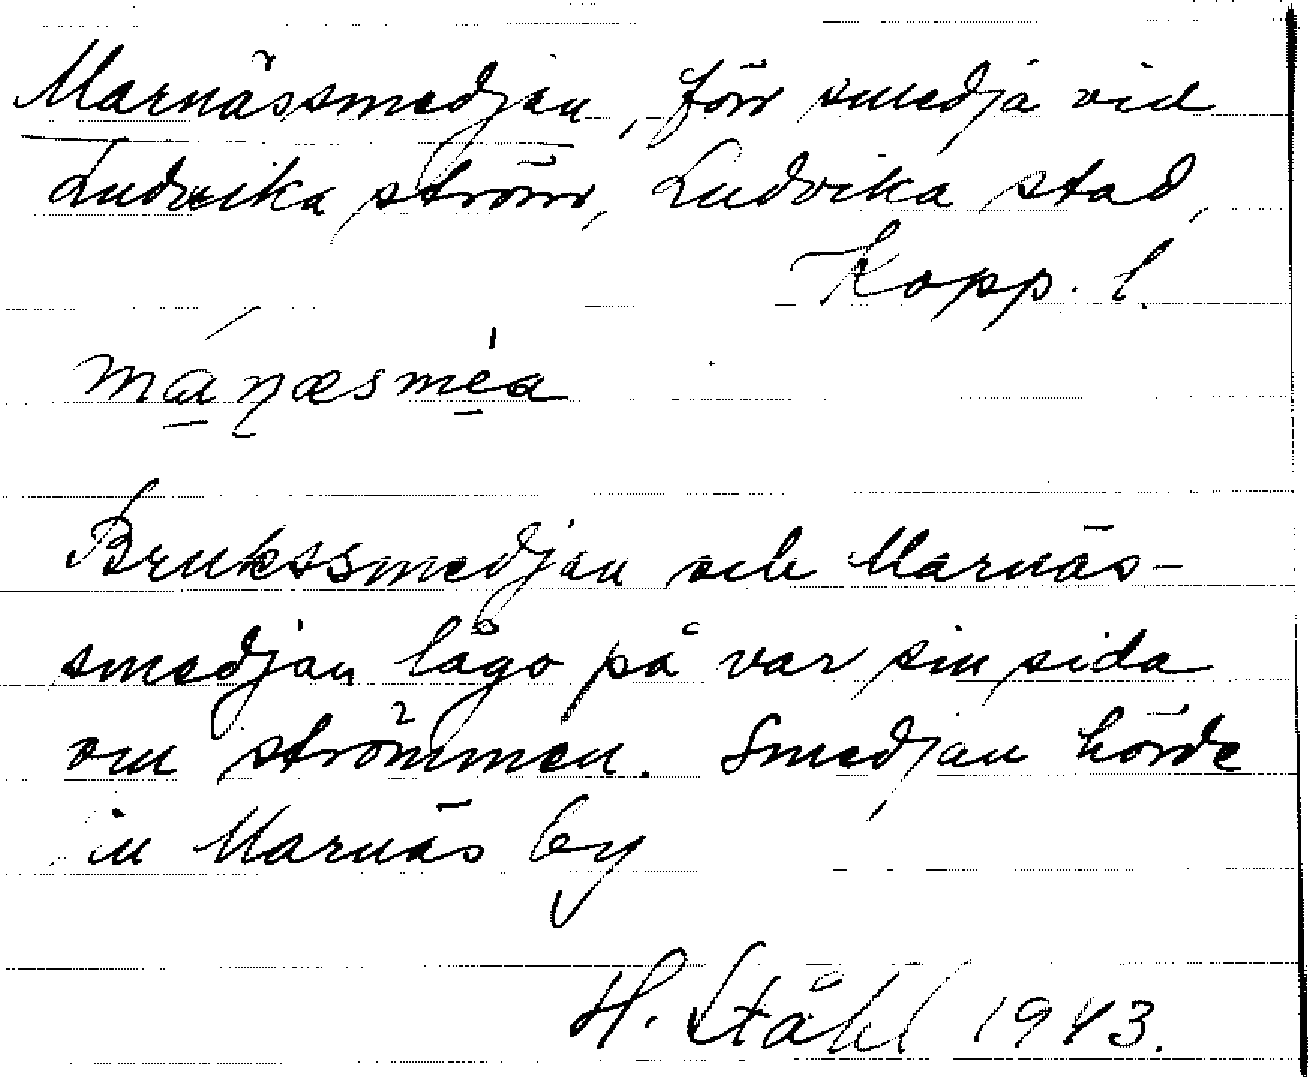 Marnässmedjan, förr smedja vid
Ludvika ström, Ludvika stad,
Kopp. l.
mánæsméa
Brukssmedjan och Marnäs-
smedjan lågo på var sin sida
om strömmen. Smedjan hörde
in Marnäs by
H. Ståhl 1943.